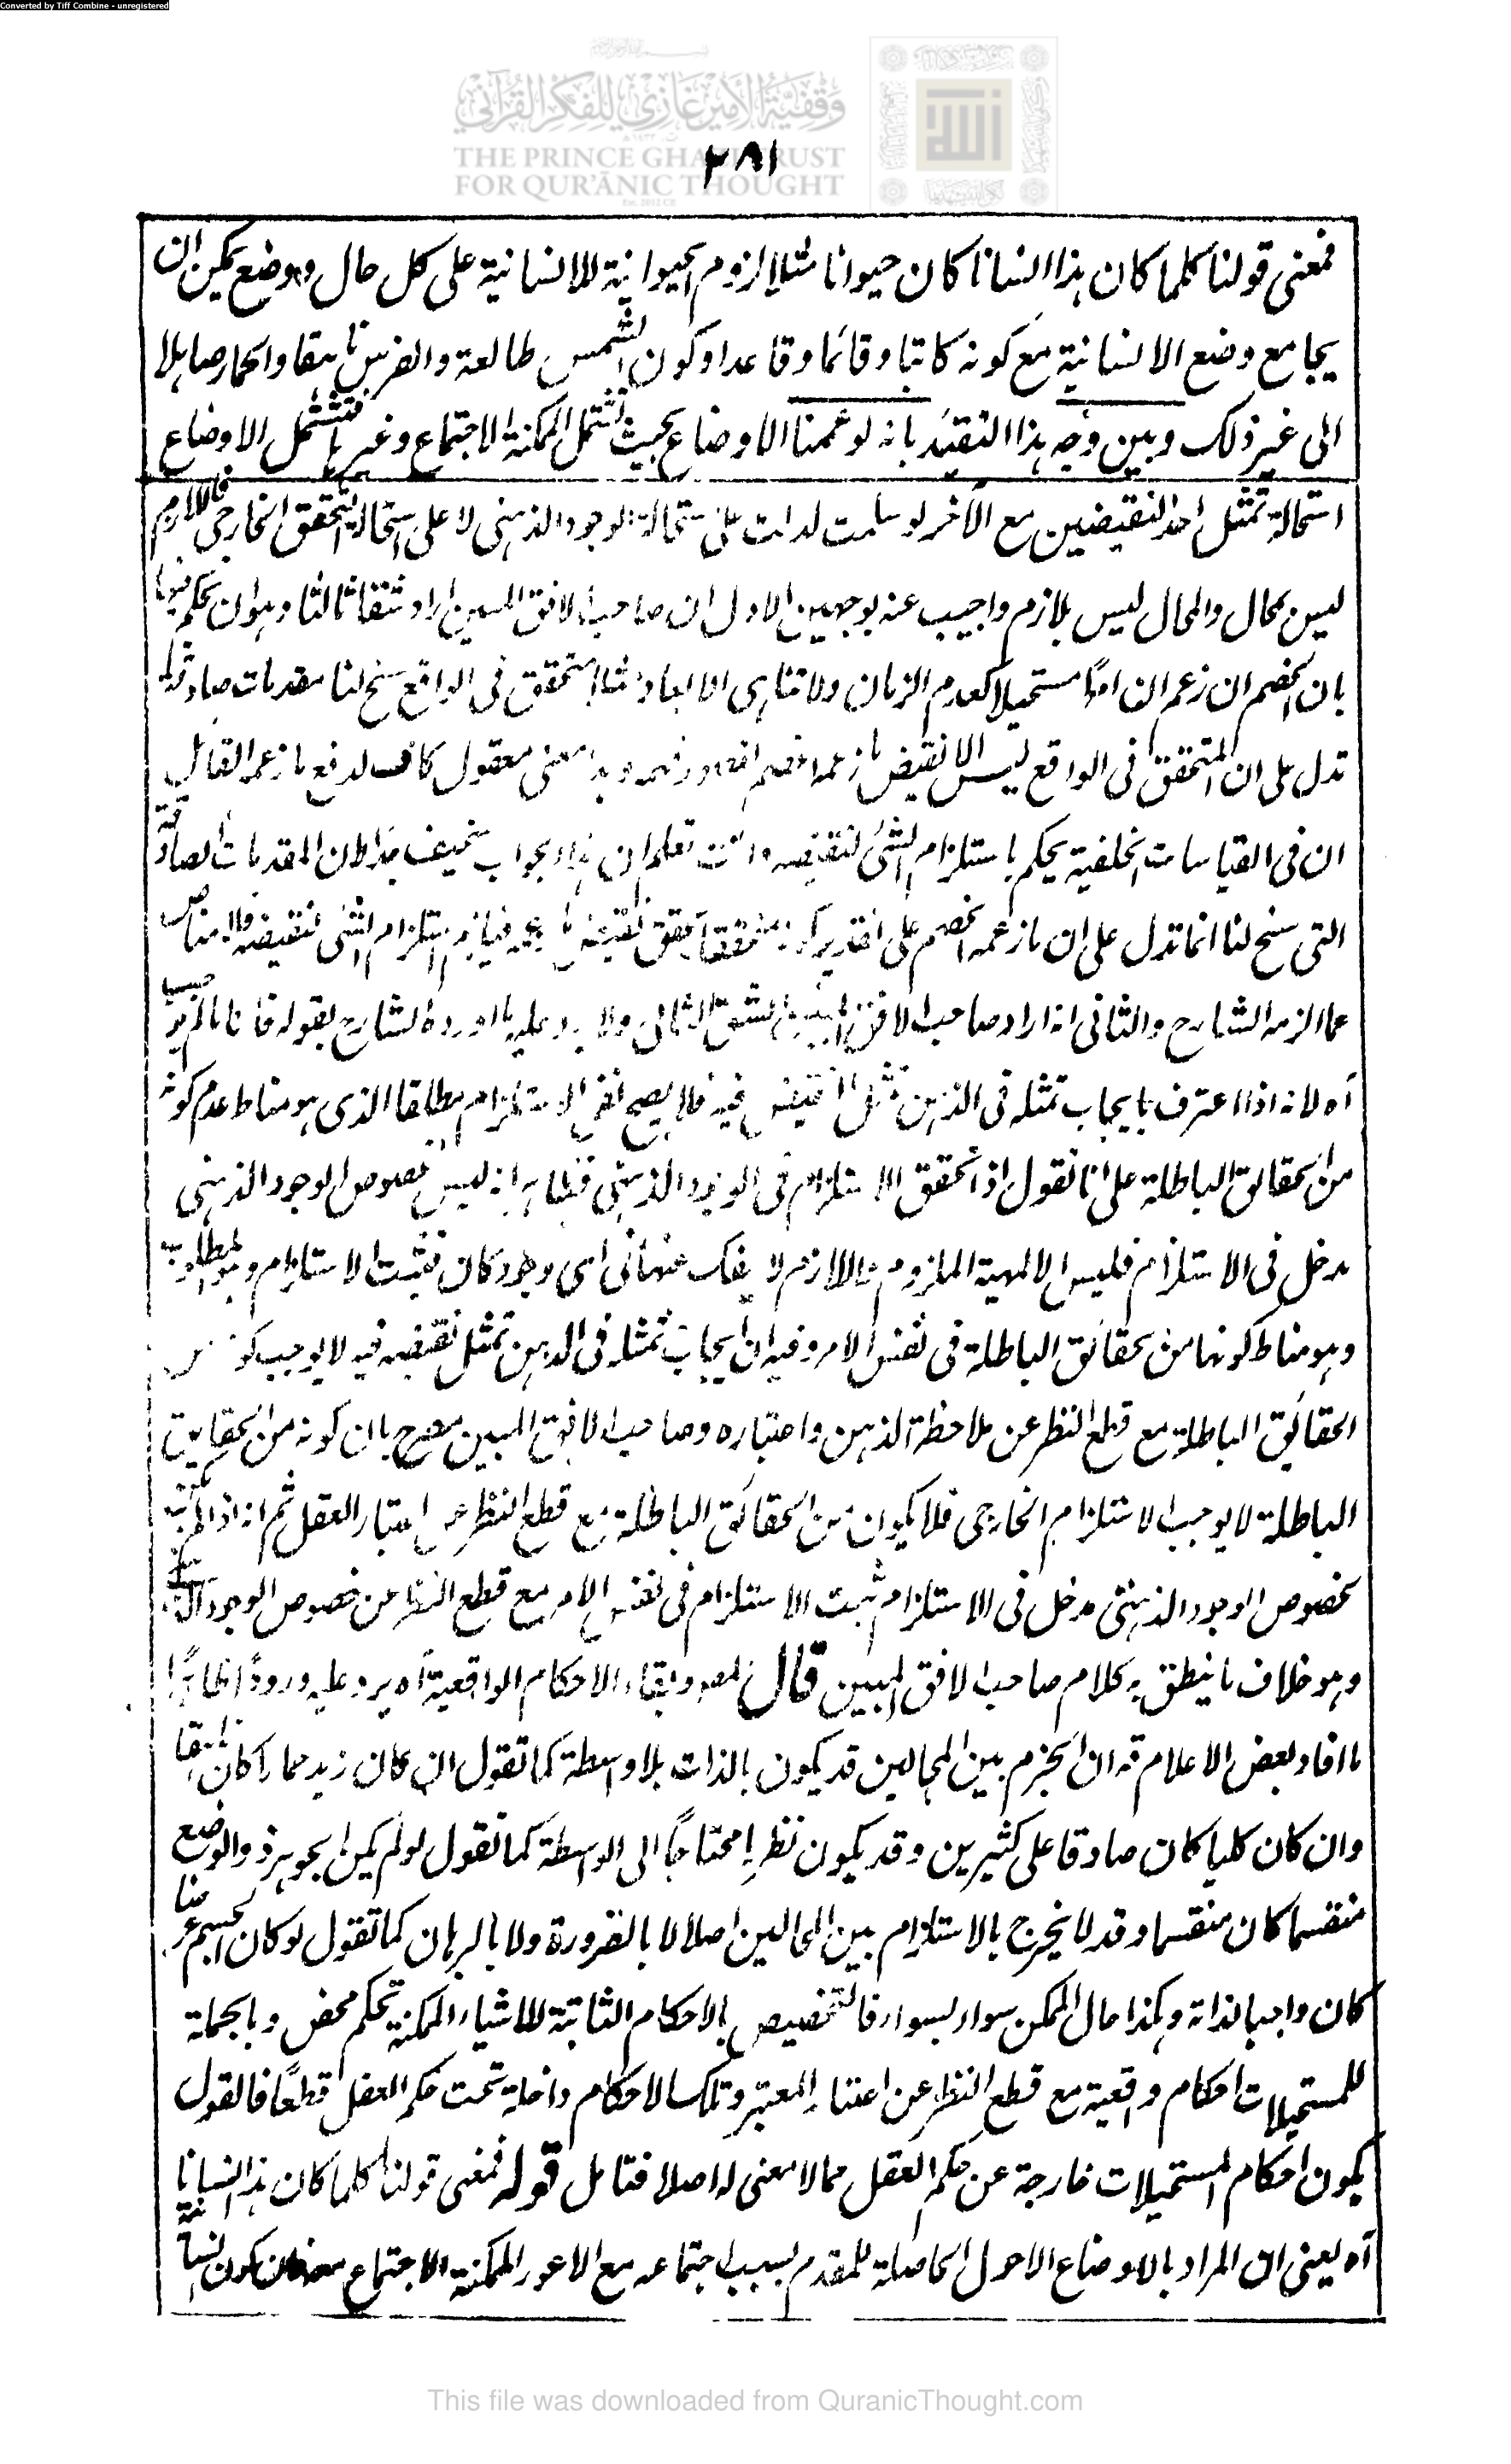 Converted by Tiff Combine - unregistered
وقفية الأمير غازي للفكر القرآني
THE PRINCE GHAZI TRUST
FOR QUR'ĀNIC THOUGHT
٢٨١
فمعنى قولنا كلما كان هذا انسانا كان حيوانا مثلا لزوم الحيوانية للانسانية على كل حال ووضع يمكن ان
يجامع وضع الانسانية مع كونه كاتبا وقائما وقاعدا وكون الشمس طالعة والفرس ناهقا والحمار صاهلا
الى غير ذلك وبين وجه هذا التقييد بانه لو عممنا الاوضاع بحيث تشتمل الممكنة الاجتماع وغيرها فتشتمل الاوضاع
استحالة تمثل احد النقيضين مع الآخر لو سلمت لدلت على استحالة الوجود الذهني لا على استحالة التحقق الخارجي فاللازم
ليس بمحال والمحال ليس بلازم واجيب عنه بوجهين الاول ان صاحب الافق المبين اراد شقا ثالثا وهو ان نحكم فيها
بان الخصم ان زعم ان امرا مستحيلا كعدم الزمان ولا تناهي الابعاد مثلا متحقق في الواقع سنح لنا مقدمات صادقة
تدل على ان المتحقق في الواقع ليس الا نقيض ما زعمه الخصم وهذا معنى معقول كاف لدفع ما زعم القائل
ان في القياسات الخلفية يحكم باستلزام الشئ لنقيضه وانت تعلم ان هذا الجواب سخيف جدا لان المقدمات الصادقة
التي سنح لنا انما تدل على ان ما زعمه الخصم على تقدير كونه متحققا يتحقق نقيضه فيلزم استلزام الشئ لنقيضه فلا مناص
عما الزمه الشارح والثاني انه اراد صاحب الافق المبين الشق الثاني ولا يرد عليه ما اورده الشارح بقوله فانا لم يوجب
آه لانه اذا اعترف بايجاب تمثله في الذهن تمثل النقيض فيه فلا يصح نفي الاستلزام مطلقا الذي هو مناط عدم كونه
من الحقائق الباطلة على انا نقول اذا تحقق الاستلزام في الوجود الذهني فظاهر انه ليس لخصوص الوجود الذهني
مدخل في الاستلزام فليس الا لمهية الملزوم واللازم لا ينفك عنها في اي وجود كان فثبت الاستلزام وهو المطلوب
وهو مناط كونها من الحقائق الباطلة في نفس الامر وفيه ان ايجاب تمثله في الذهن تمثل نقيضه فيه لا يوجب كونه من
الحقائق الباطلة مع قطع النظر عن ملاحظة الذهن واعتباره وصاحب الافق المبين مصرح بان كونه من الحقايق
الباطلة لا يوجب الاستلزام الخارجي فلا يكون من الحقائق الباطلة مع قطع النظر عن اعتبار العقل ثم انه اذا لم يكن
بخصوص الوجود الذهني مدخل في الاستلزام ثبت الاستلزام في نفس الامر مع قطع النظر عن خصوص الوجود
وهو خلاف ما ينطق به كلام صاحب الافق المبين قال المص وبقاء الاحكام الواقعية آه يرد عليه ورودا ظاهرا
ما افاد بعض الاعلام قه ان الجزم بين المحالين قد يكون بالذات بلا واسطة كما تقول ان كان زيد حمارا كان ناهقا
وان كان كليا كان صادقا على كثيرين وقد يكون نظريا محتاجا الى الواسطة كما تقول لو لم يكن الجوهر ذو الوضع
منقسما كان منقسما وقد لا يخرج بالاستلزام بين المحالين اصلا لا بالضرورة ولا بالبرهان كما تقول لو كان الجسم عرضا
كان واجبا لذاته وهكذا حال الممكن سواء بسواء فالتخصيص بالاحكام الثابتة للاشياء الممكنة تحكم محض وبالجملة
للمستحيلات احكام واقعية مع قطع النظر عن اعتبار المعتبر وتلك الاحكام داخلة تحت حكم العقل قطعا فالقول
بكون احكام المستحيلات خارجة عن حكم العقل مما لا معنى له اصلا فتامل قوله فمعنى قولنا كلما كان هذا انسانا
آه يعنى ان المراد بالاوضاع الاحوال الحاصلة للمقدم بسبب اجتماعه مع الامور الممكنة الاجتماع
This file was downloaded from QuranicThought.com